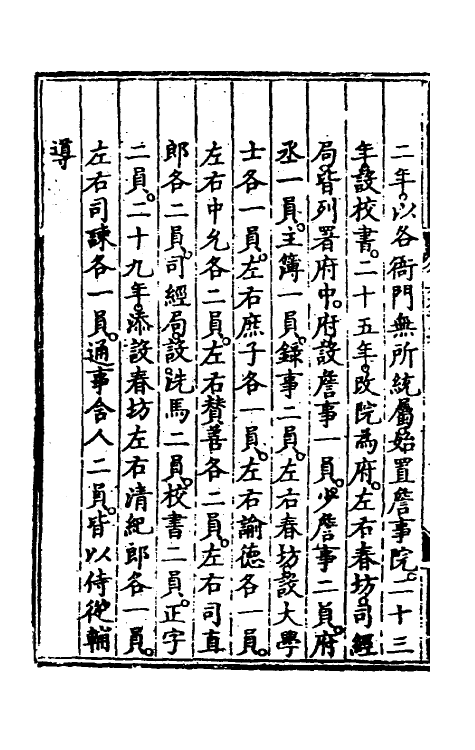 二年。以各衙門無所統屬。始置詹事院。二十三
年。設校書。二十五年。改院為府。左右春坊。司經
局。皆列署府中。府設詹事一員。少詹事二員。府
丞一員。主簿一員。錄事二員。左右春坊設大學
士各一員。左右庶子各一員。左右諭德各一員。
左右中允各二員。左右贊善各二員。左右司直
郎各二員。司經局。設洗馬二員。校書二員。正字
二員。二十九年。添設春坊左右清紀郎各一員。
左右司諫各一員。通事舍人二員。皆以侍從輔
導